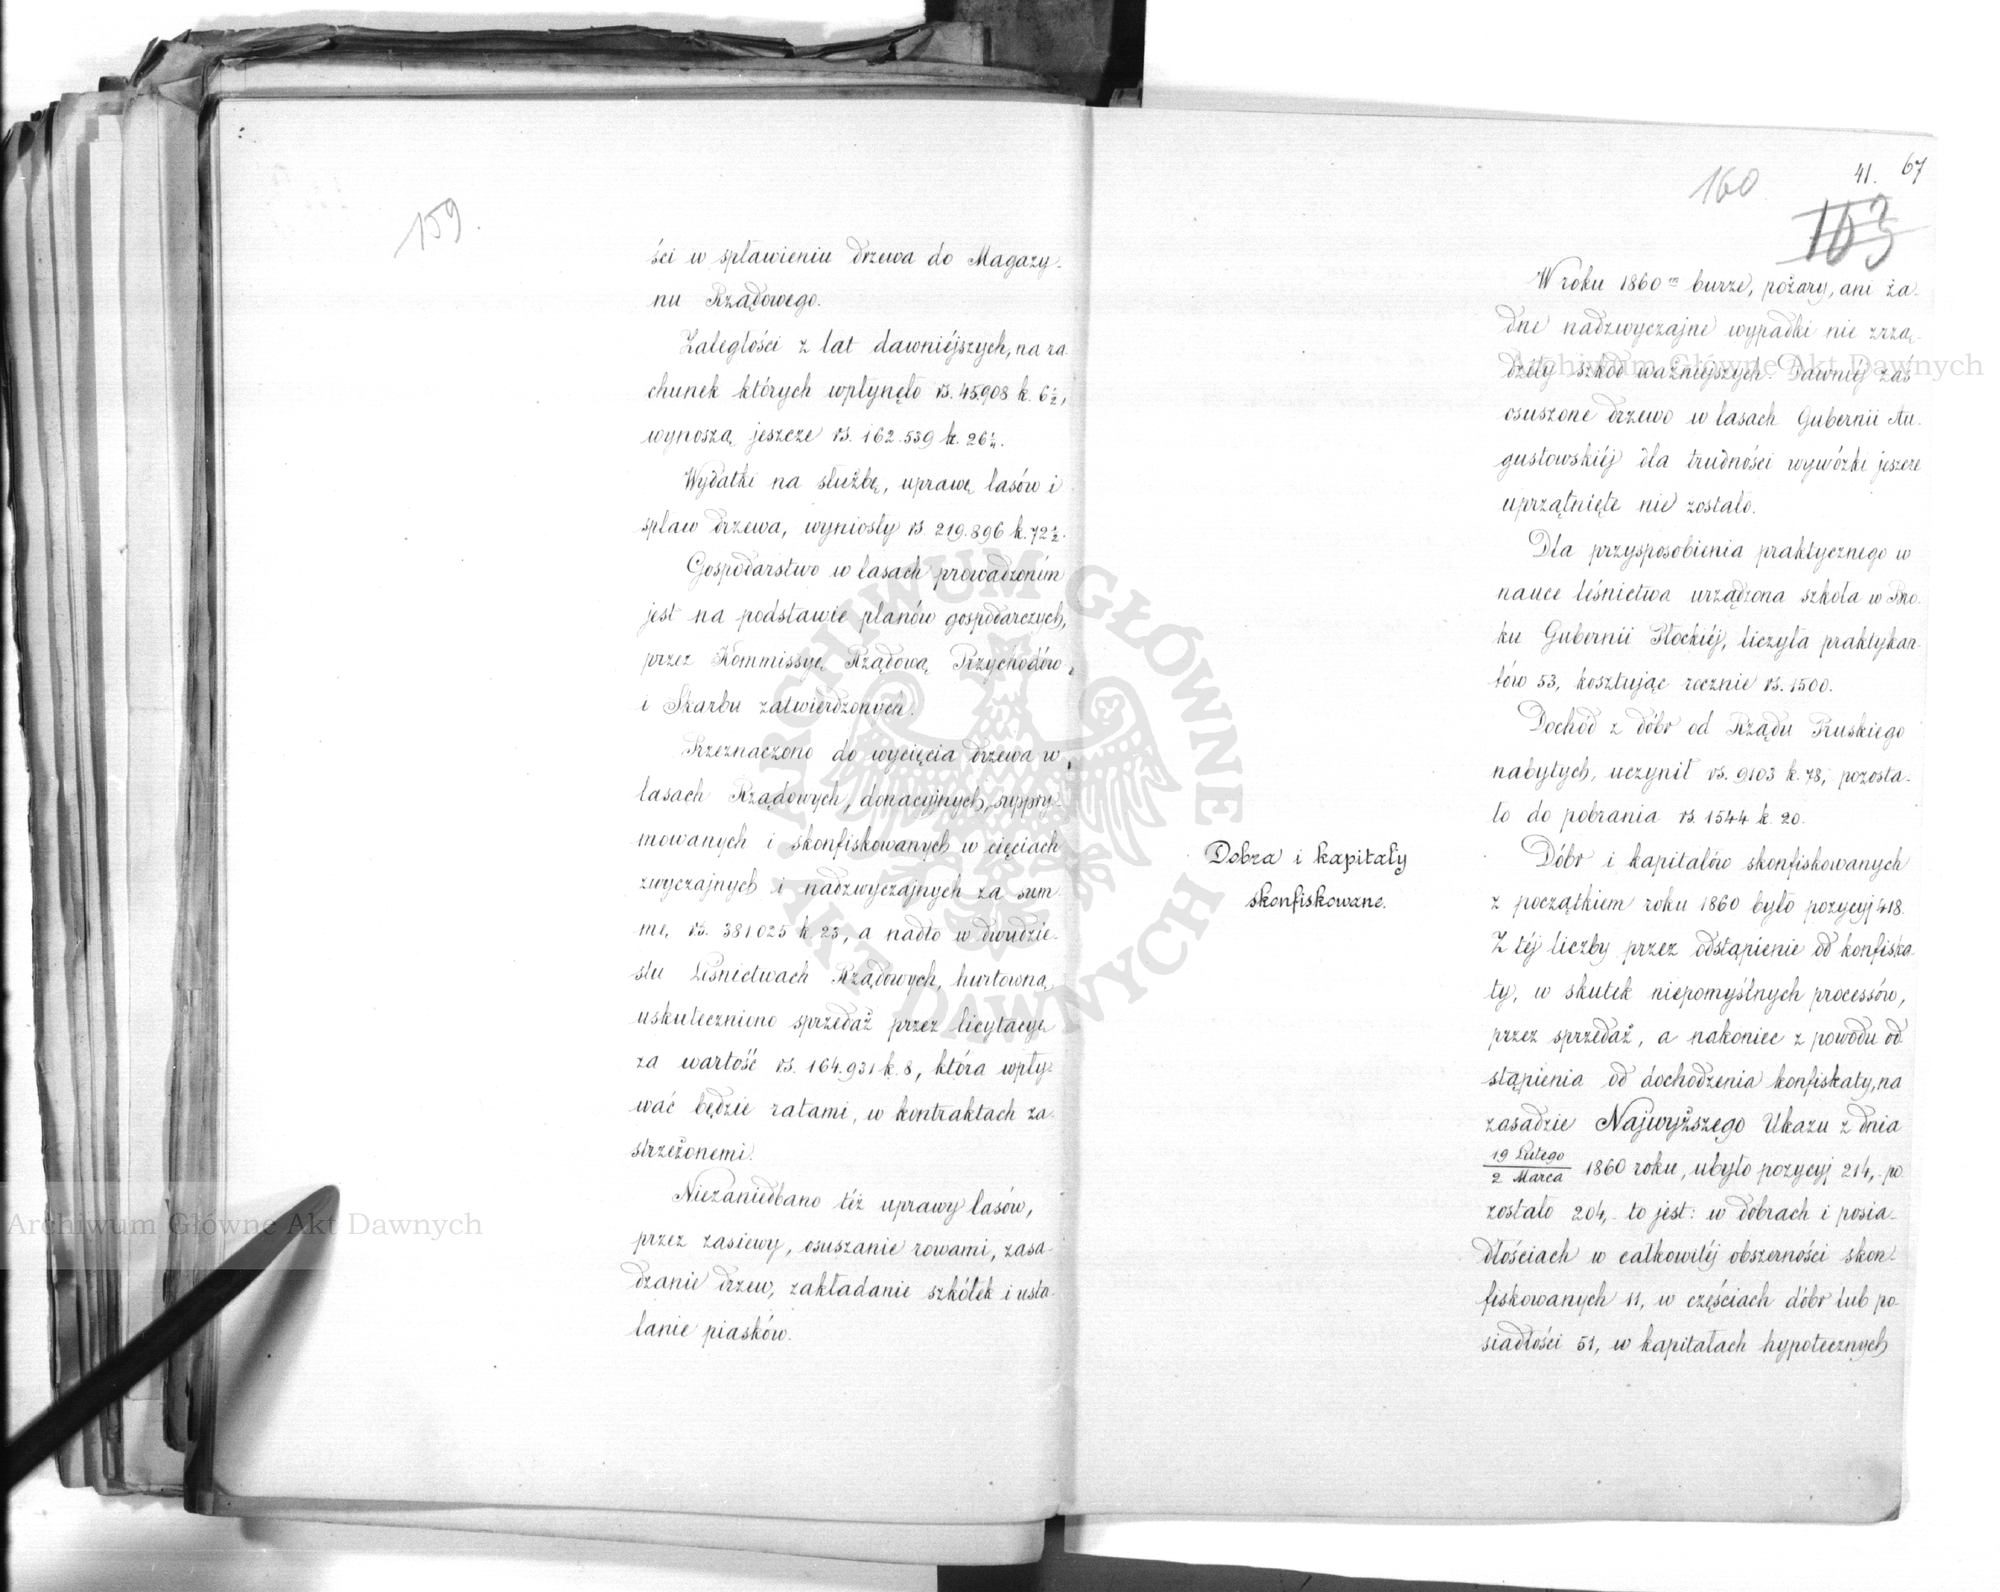 159.
ści w spławieniu drzewa do Magazy-
nu Rządowego.
Zaległości z lat dawniéjszych, na ra-
chunek których wpłynęło rs. 45.908 k. 6½,
wynoszą jeszcze rs. 162.539 k. 26½.
Wydatki na służbę, uprawę lasów i
spław drzewa, wyniosły rs 219.896 k. 72½.
Gospodarstwo w lasach prowadzoném
jest na podstawie planów gospodarczych,
przez Kommissyę Rządową Przychodów
i Skarbu zatwierdzonych.
Przeznaczono do wycięcia drzewa w
lasach Rządowych, donacyjnych, suppry-
mowanych i skonfiskowanych w cięciach
zwyczajnych i nadzwyczajnych za sum-
mę, rs. 381025 k. 23, a nadto w dwudzie-
stu Leśnictwach Rządowych, hurtowną
uskuteczniono sprzedaż przez licytacyę
za wartość rs. 164.931 k. 8, która wpły-
wać będzie ratami, w kontraktach za-
strzeżonemi.
Niezaniedbano téż uprawy lasów,
przez zasiewy, osuszanie rowami, zasa-
dzanie drzew, zakładanie szkółek i usta-
lanie piasków.
160
41. 67
163
W roku 1860 m burze, pożary, ani ża-
dne nadzwyczajne wypadki nie zrzą-
dziły szkód ważniejszych. Dawniéj zaś
osuszone drzewo w lasach Gubernii Au-
gustowskiéj dla trudności wywózki jeszcze
uprzątnięte nie zostało.
Dla przysposobienia praktycznego w
nauce leśnictwa urządzona szkoła w Bro-
ku Gubernii Płockiéj, liczyła praktykan-
tów 53, kosztując rocznie rs. 1500.
Dochód z dóbr od Rządu Pruskiego
nabytych, uczynił rs. 9103 k. 78, pozosta-
ło do pobrania rs. 1544 k. 20.
Dobra i kapitały
skonfiskowane.
Dóbr i kapitałów skonfiskowanych
z początkiem roku 1860 było pozycyj 418.
Z téj liczby przez odstąpienie od konfiska-
ty, w skutek niepomyślnych processów,
przez sprzedaż, a nakoniec z powodu od-
stąpienia od dochodzenia konfiskaty, na
zasadzie Najwyższego Ukazu z dnia
19 Lutego / 2 Marca 1860 roku, ubyło pozycyj 214,- po
zostało 204,- to jest: w dobrach i posia-
dłościach w całkowitéj obszerności skon-
fiskowanych 11, w częściach dóbr lub po-
siadłości 51, w kapitałach hypotecznych
Archiwum Główne Akt Dawnych
Archiwum Główne Akt Dawnych
ARCHIWUM GŁÓWNE
AKT DAWNYCH